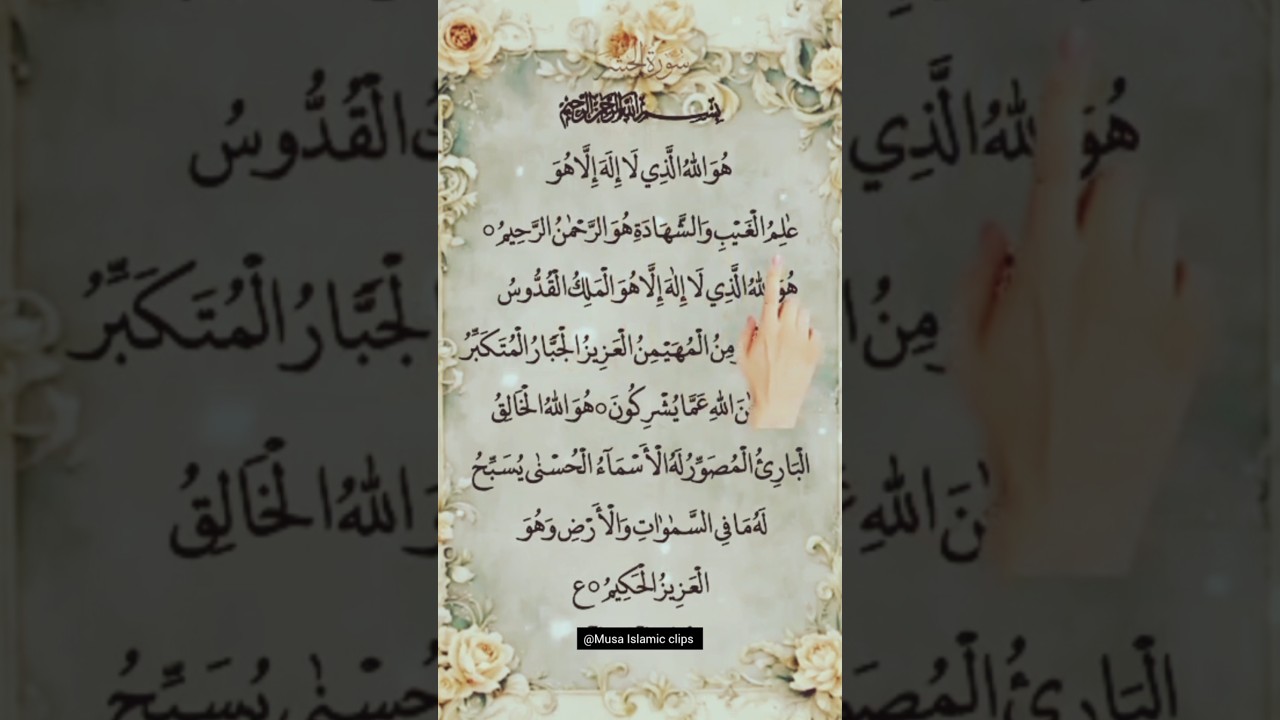 سُورَةُ الْحَشْرِ
بِسْمِ اللّٰهِ الرَّحْمٰنِ الرَّحِيْمِ
هُوَ اللّٰهُ الَّذِي لَا إِلَهَ إِلَّا هُوَ
عٰلِمُ الْغَيْبِ وَالشَّهَادَةِ هُوَ الرَّحْمٰنُ الرَّحِيمُ ○
هُوَ اللّٰهُ الَّذِي لَا إِلٰهَ إِلَّا هُوَ الْمَلِكُ الْقُدُّوسُ
الْمُهَيْمِنُ الْعَزِيزُ الْجَبَّارُ الْمُتَكَبِّرُ
اللّٰهِ عَمَّا يُشْرِكُونَ ○ هُوَ اللّٰهُ الْخَالِقُ
الْبَارِئُ الْمُصَوِّرُ لَهُ الْأَسْمَآءُ الْحُسْنٰى يُسَبِّحُ
لَهُ مَا فِي السَّمٰوٰاتِ وَالْأَرْضِ وَهُوَ
الْعَزِيزُ الْحَكِيمُ ○ ع
@Musa Islamic clips